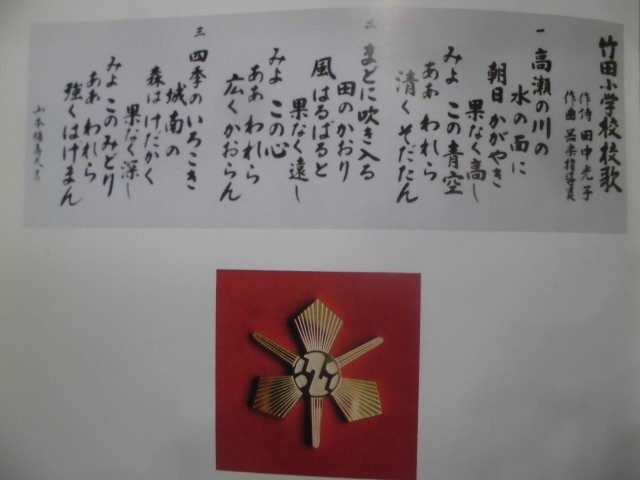 竹田小学校校歌
作詩 田中光子
作曲 音楽指導員
一 高瀬の川の
水の面に
朝日かがやき
果なく高し
みよ この青空
ああ われら
清くそだたん
二 まどに吹き入る
田のかおり
風はるばると
果なく遠し
みよ この心
ああ われら
広くかおらん
三 四季のいろこき
城南の
森はけだかく
果なく深し
みよ このみどり
ああ われら
強くはげまん